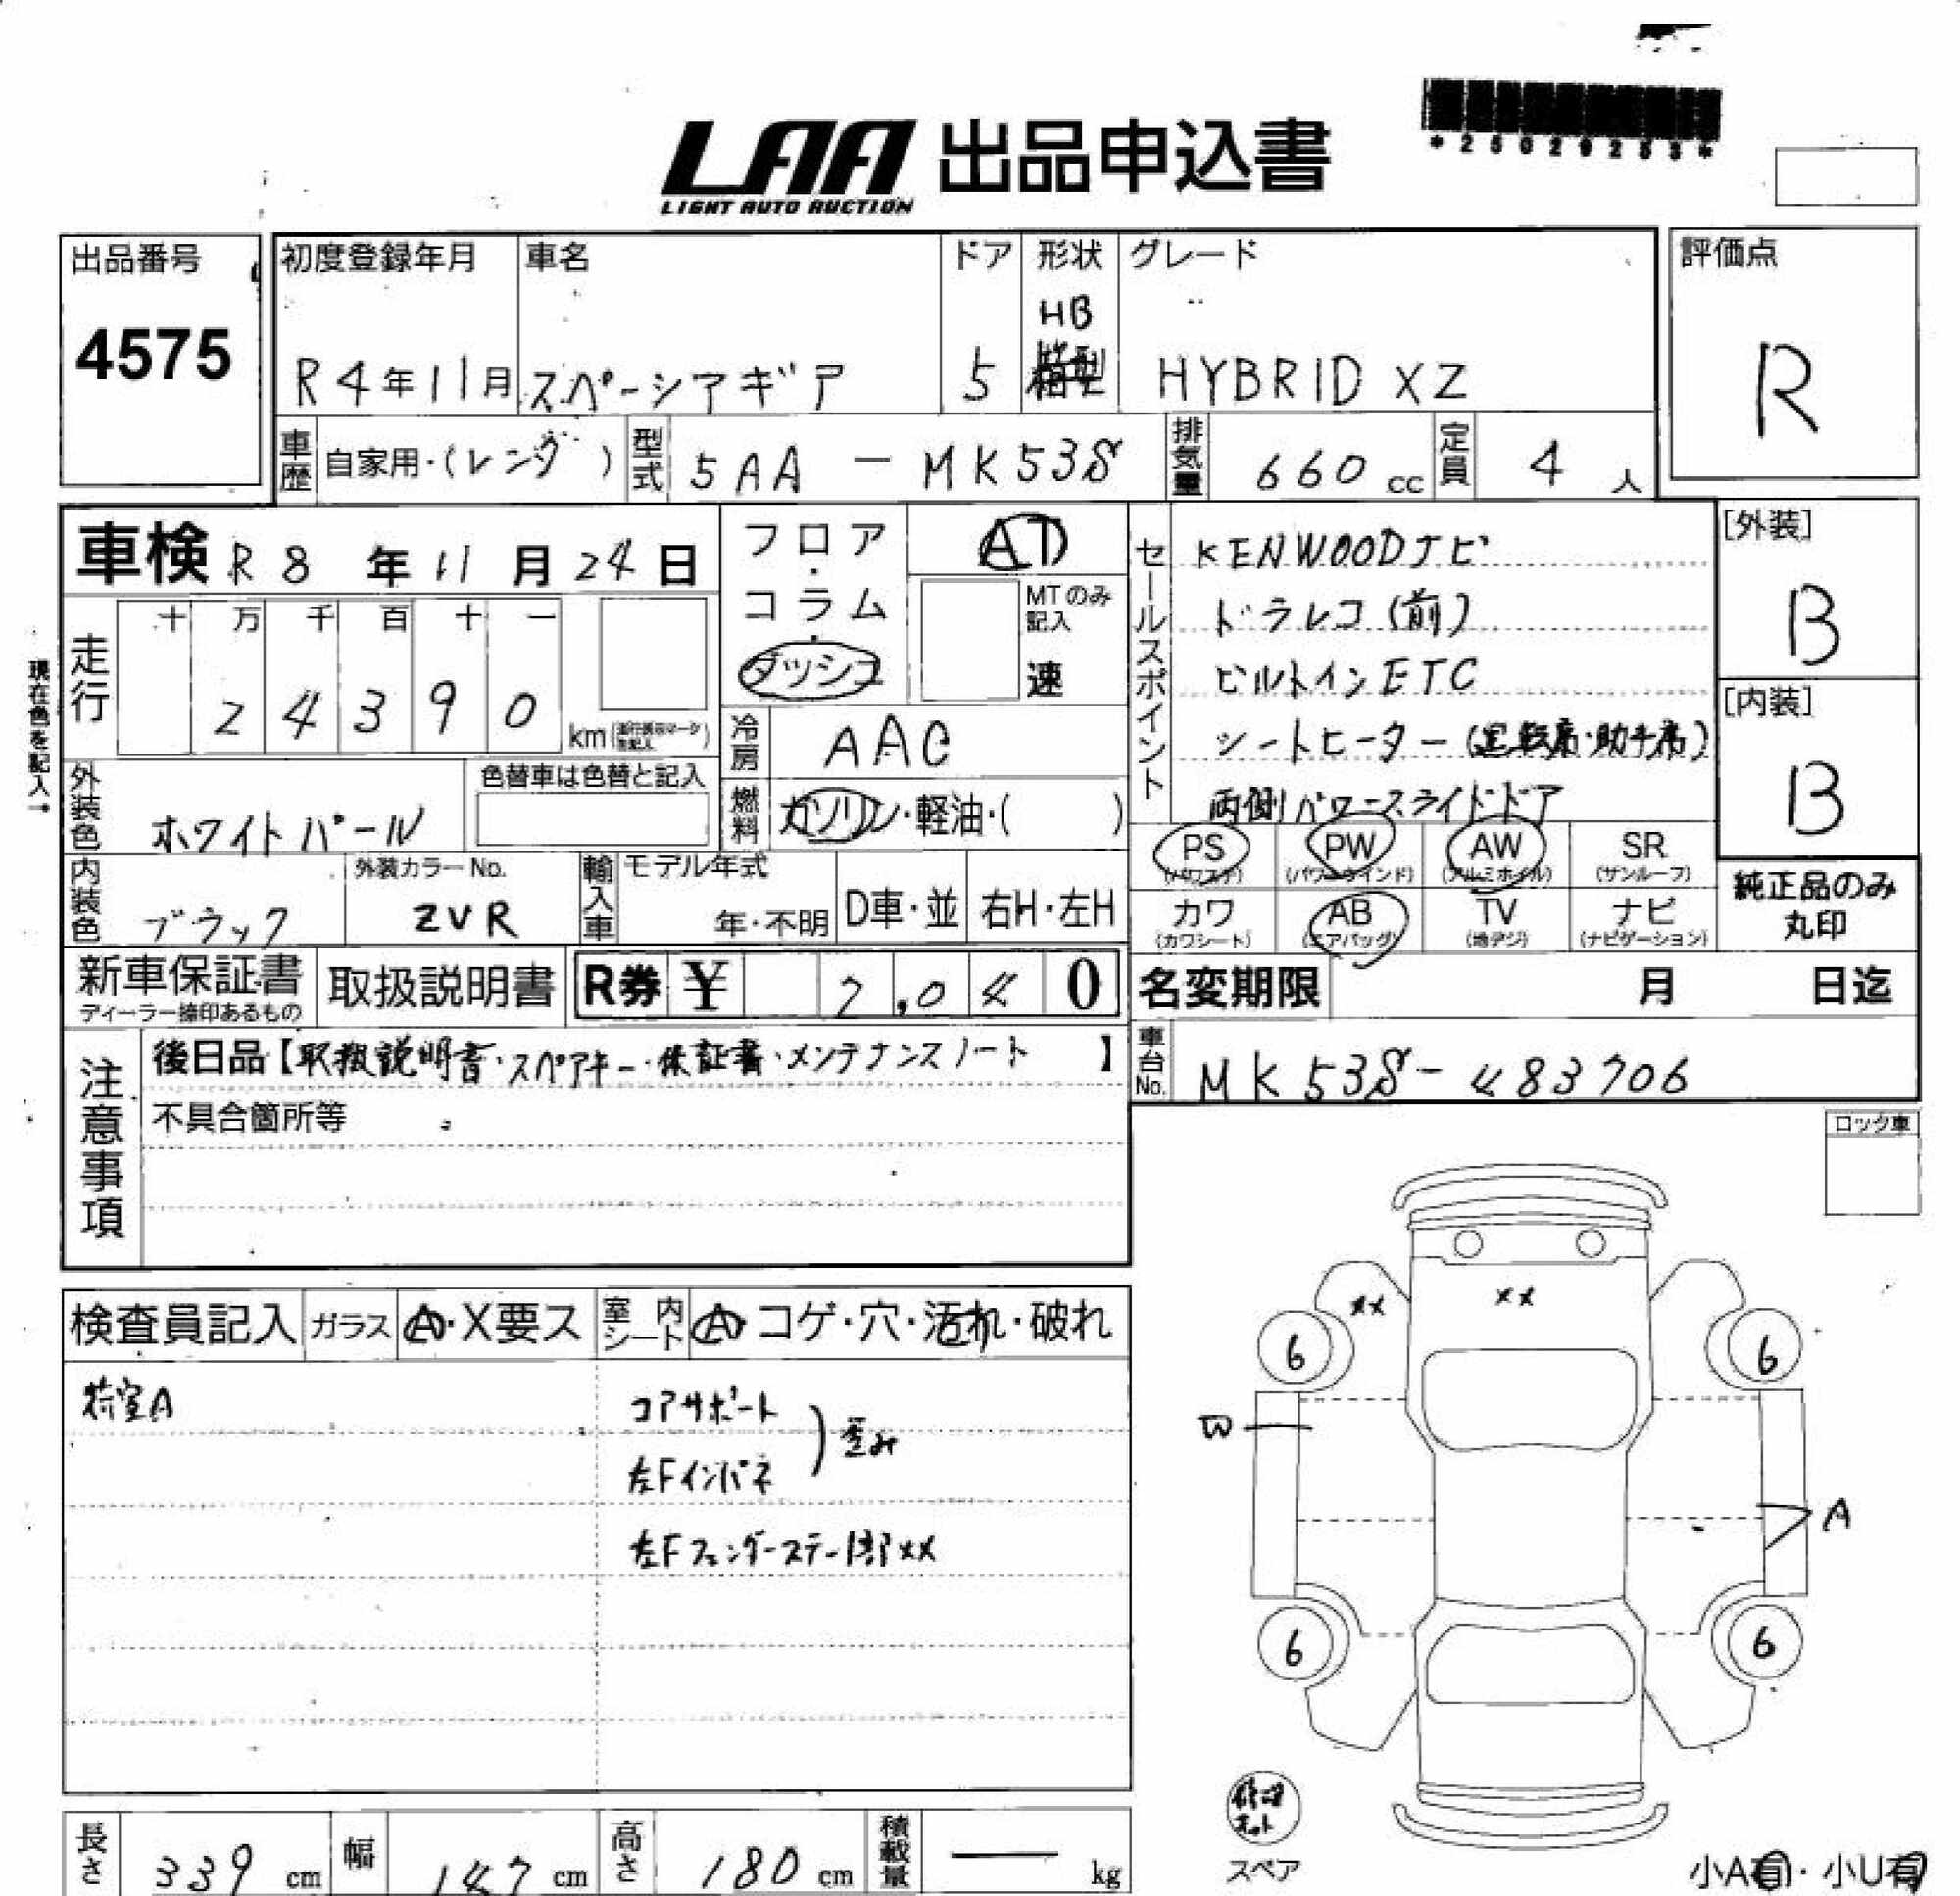 *25029253*
LAA 出品申込書
LIGHT AUTO AUCTION
出品番号
4575
初度登録年月
R4年11月
車名
スペーシアギア
ドア
5
形状
HB
箱型
グレード
HYBRID XZ
評価点
R
車歴
自家用・(レンタ)
型式
5AA - MK53S
排気量
660 cc
定員
4 人
車検 R8年11月24日
フロア・コラム・ダッシュ
AT
MTのみ記入
速
走行
十 万 千 百 十 一
2 4 3 9 0
km
現在色を記入→
冷房
AAC
燃料
ガソリン・軽油・( )
外装色
ホワイトパール
色替車は色替と記入
内装色
ブラック
外装カラーNo.
ZVR
輸入車
モデル年式
年・不明
D車・並
右H・左H
セールスポイント
KENWOODナビ
ドラレコ(前)
ビルトインETC
シートヒーター(運転席・助手席)
両側パワースライドドア
[外装]
B
[内装]
B
PS (パワステ)
PW (パワーウインド)
AW (アルミホイル)
SR (サンルーフ)
カワ (カワシート)
AB (エアバッグ)
TV (地デジ)
ナビ (ナビゲーション)
純正品のみ
丸印
新車保証書
ディーラー捺印あるもの
取扱説明書
R券 ¥ 7,040
名変期限 月 日迄
車台No.
MK53S-483706
注意事項
後日品【取扱説明書・スペアキー・保証書・メンテナンスノート】
不具合箇所等
ロック車
検査員記入
ガラス
A・X要ス
室内シート
A・コゲ・穴・汚れ・破れ
荷室A
コアサポート
左Fインパネ
歪み
左Fフェンダーステー部XX
XX
XX
6
6
W
A
6
6
修理キット
スペア
小A有・小U有
長さ
339 cm
幅
147 cm
高さ
180 cm
積載量
― kg